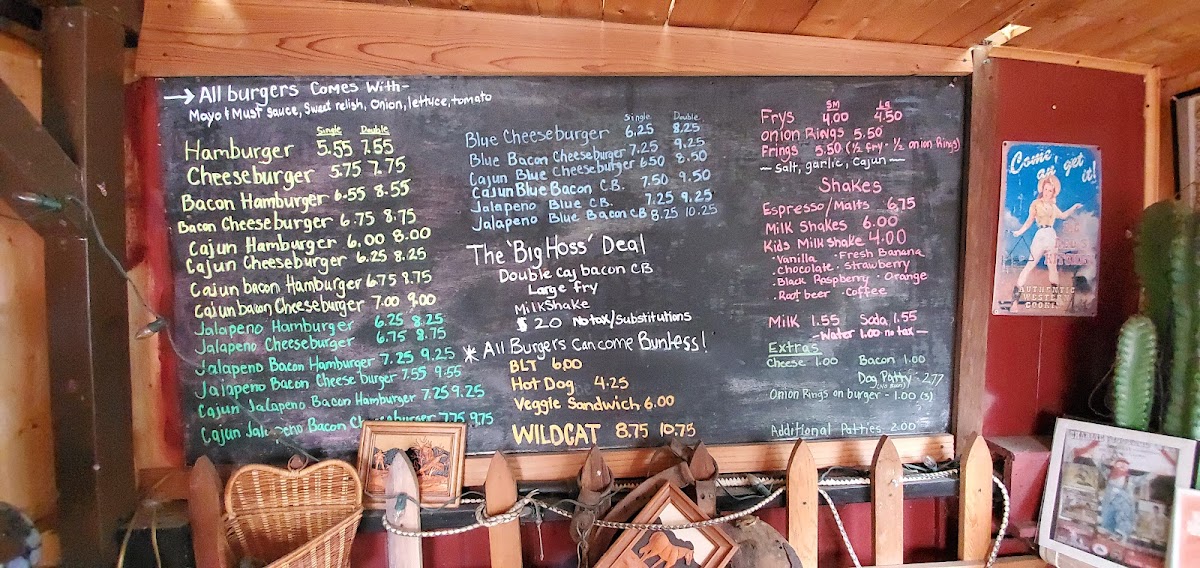 → All burgers Comes With-
Mayo & Must Sauce, Sweet relish, Onion, lettuce, tomato
Single Double
Hamburger 5.55 7.55
Cheeseburger 5.75 7.75
Bacon Hamburger 6.55 8.55
Bacon Cheeseburger 6.75 8.75
Cajun Hamburger 6.00 8.00
Cajun Cheeseburger 6.25 8.25
Cajun bacon Hamburger 6.75 8.75
Cajun bacon Cheeseburger 7.00 9.00
Jalapeno Hamburger 6.25 8.25
Jalapeno Cheeseburger 6.75 8.75
Jalapeno Bacon Hamburger 7.25 9.25
Jalapeno Bacon Cheese burger 7.55 9.55
Cajun Jalapeno Bacon Hamburger 7.25 9.25
Cajun Bacon 7.75 9.75
Single Double
Blue Cheeseburger 6.25 8.25
Blue Bacon Cheeseburger 7.25 9.25
Cajun Blue Cheeseburger 6.50 8.50
Cajun Blue Bacon C.B. 7.50 9.50
Jalapeno Blue C.B. 7.25 9.25
Jalapeno Blue Bacon CB 8.25 10.25
The 'Big Hoss' Deal
Double Caj bacon CB
Large fry
Milkshake
$20 No tax/substitutions
* All Burgers can come Bunless!
BLT 6.00
Hot Dog 4.25
Veggie Sandwich 6.00
WILDCAT 8.75 10.75
SM Lg
Frys 4.00 4.50
onion Rings 5.50
Frings 5.50 (½ fry - ½ onion Rings)
— Salt, garlic, Cajun —
Shakes
Espresso/Malts 6.75
Milk Shakes 6.00
Kids Milk shake 4.00
·Vanilla ·Fresh Banana
·Chocolate ·Strawberry
·Black Raspberry ·Orange
·Root beer ·Coffee
Milk 1.55 Soda 1.55
—Water 1.00 no tax—
Extras
Cheese 1.00 Bacon 1.00
Dog Patty - 2.77
(No Bun)
Onion Rings on burger - 1.00 (3)
Additional Patties 2.00
Come an' get it!
AUTHENTIC
WESTERN